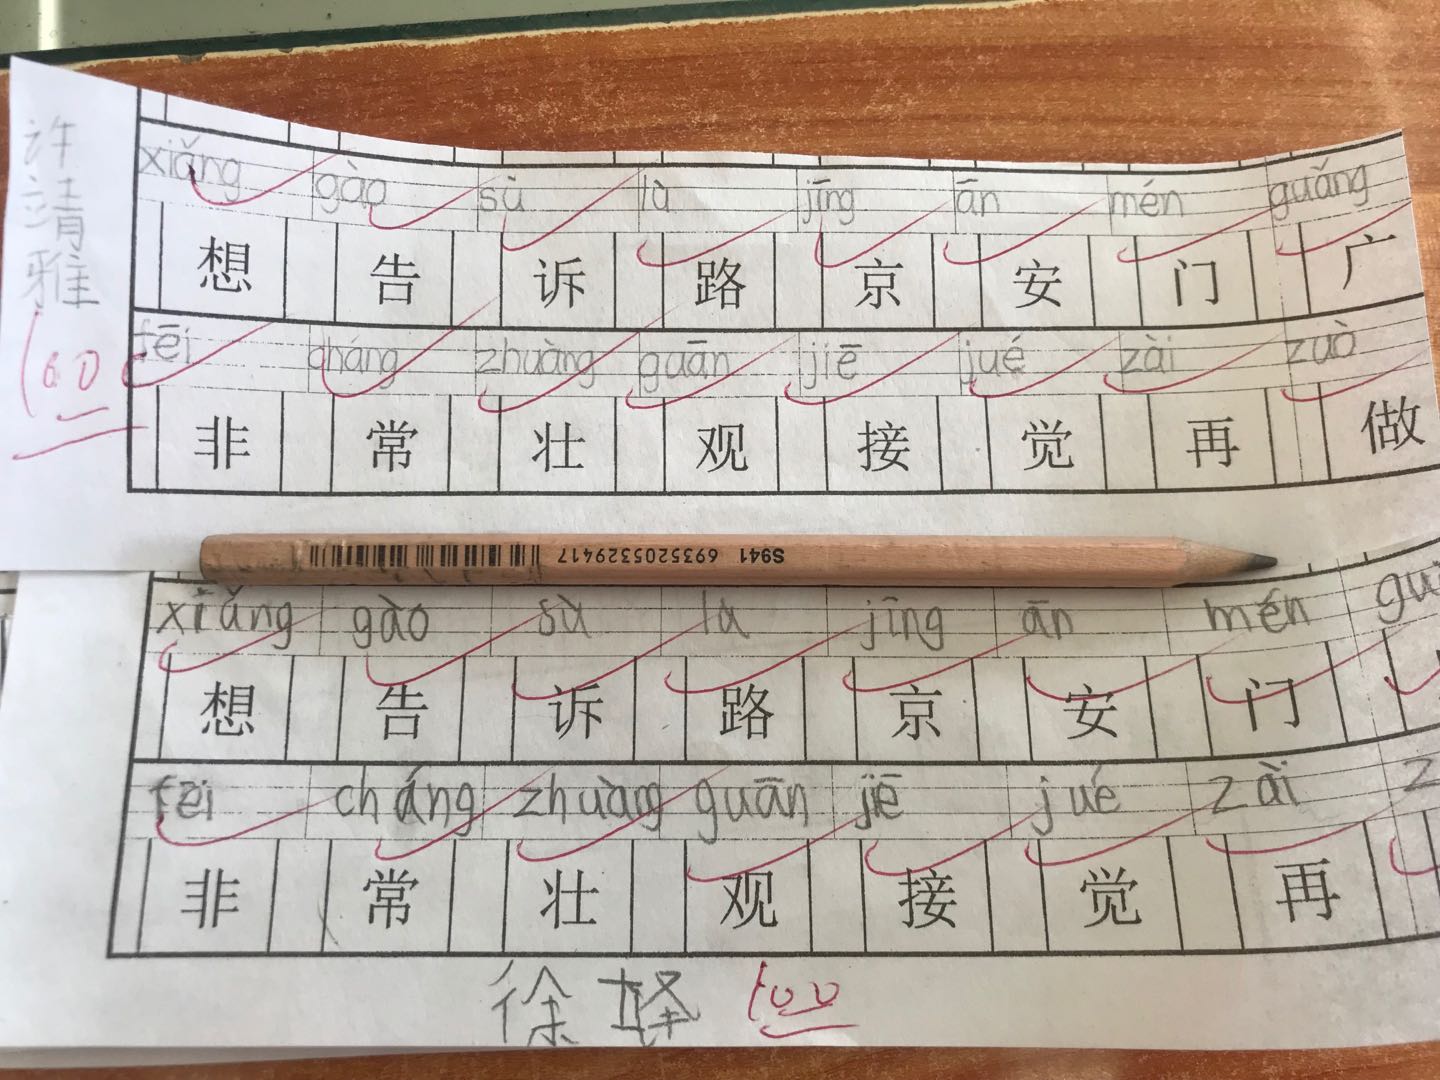 许靖雅
100
xiǎng gào sù lù jīng ān mén guǎng
想 告 诉 路 京 安 门 广
fēi cháng zhuàng guān jiē jué zài zuò
非 常 壮 观 接 觉 再 做
S941 6935205329417
xiǎng gào sù lù jīng ān mén
想 告 诉 路 京 安 门
fēi cháng zhuàng guān jiē jué zài
非 常 壮 观 接 觉 再
徐
100